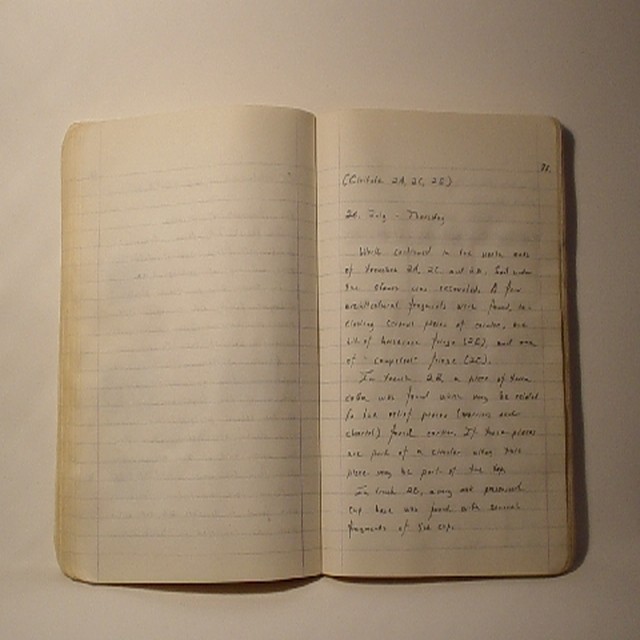 71.
(Civitate 2A, 2C, 2E)
2d. July - Thursday
Work continued in the north ends
of trenches 2A, 2C and 2E. Soil under
the stones was excavated. A few
architectural fragments were found, in-
cluding several pieces of cornice, one
bit of horserace frieze (2E), and one
of "campstool" frieze (2C).
In trench 2E, a piece of terra
cotta was found which may be related
to the relief pieces (warriors and
chariot) found earlier. If these pieces
are part of a circular altar this
piece may be part of the top.
In trench 2C, a very well preserved
cup base was found with several
fragments of the cup.